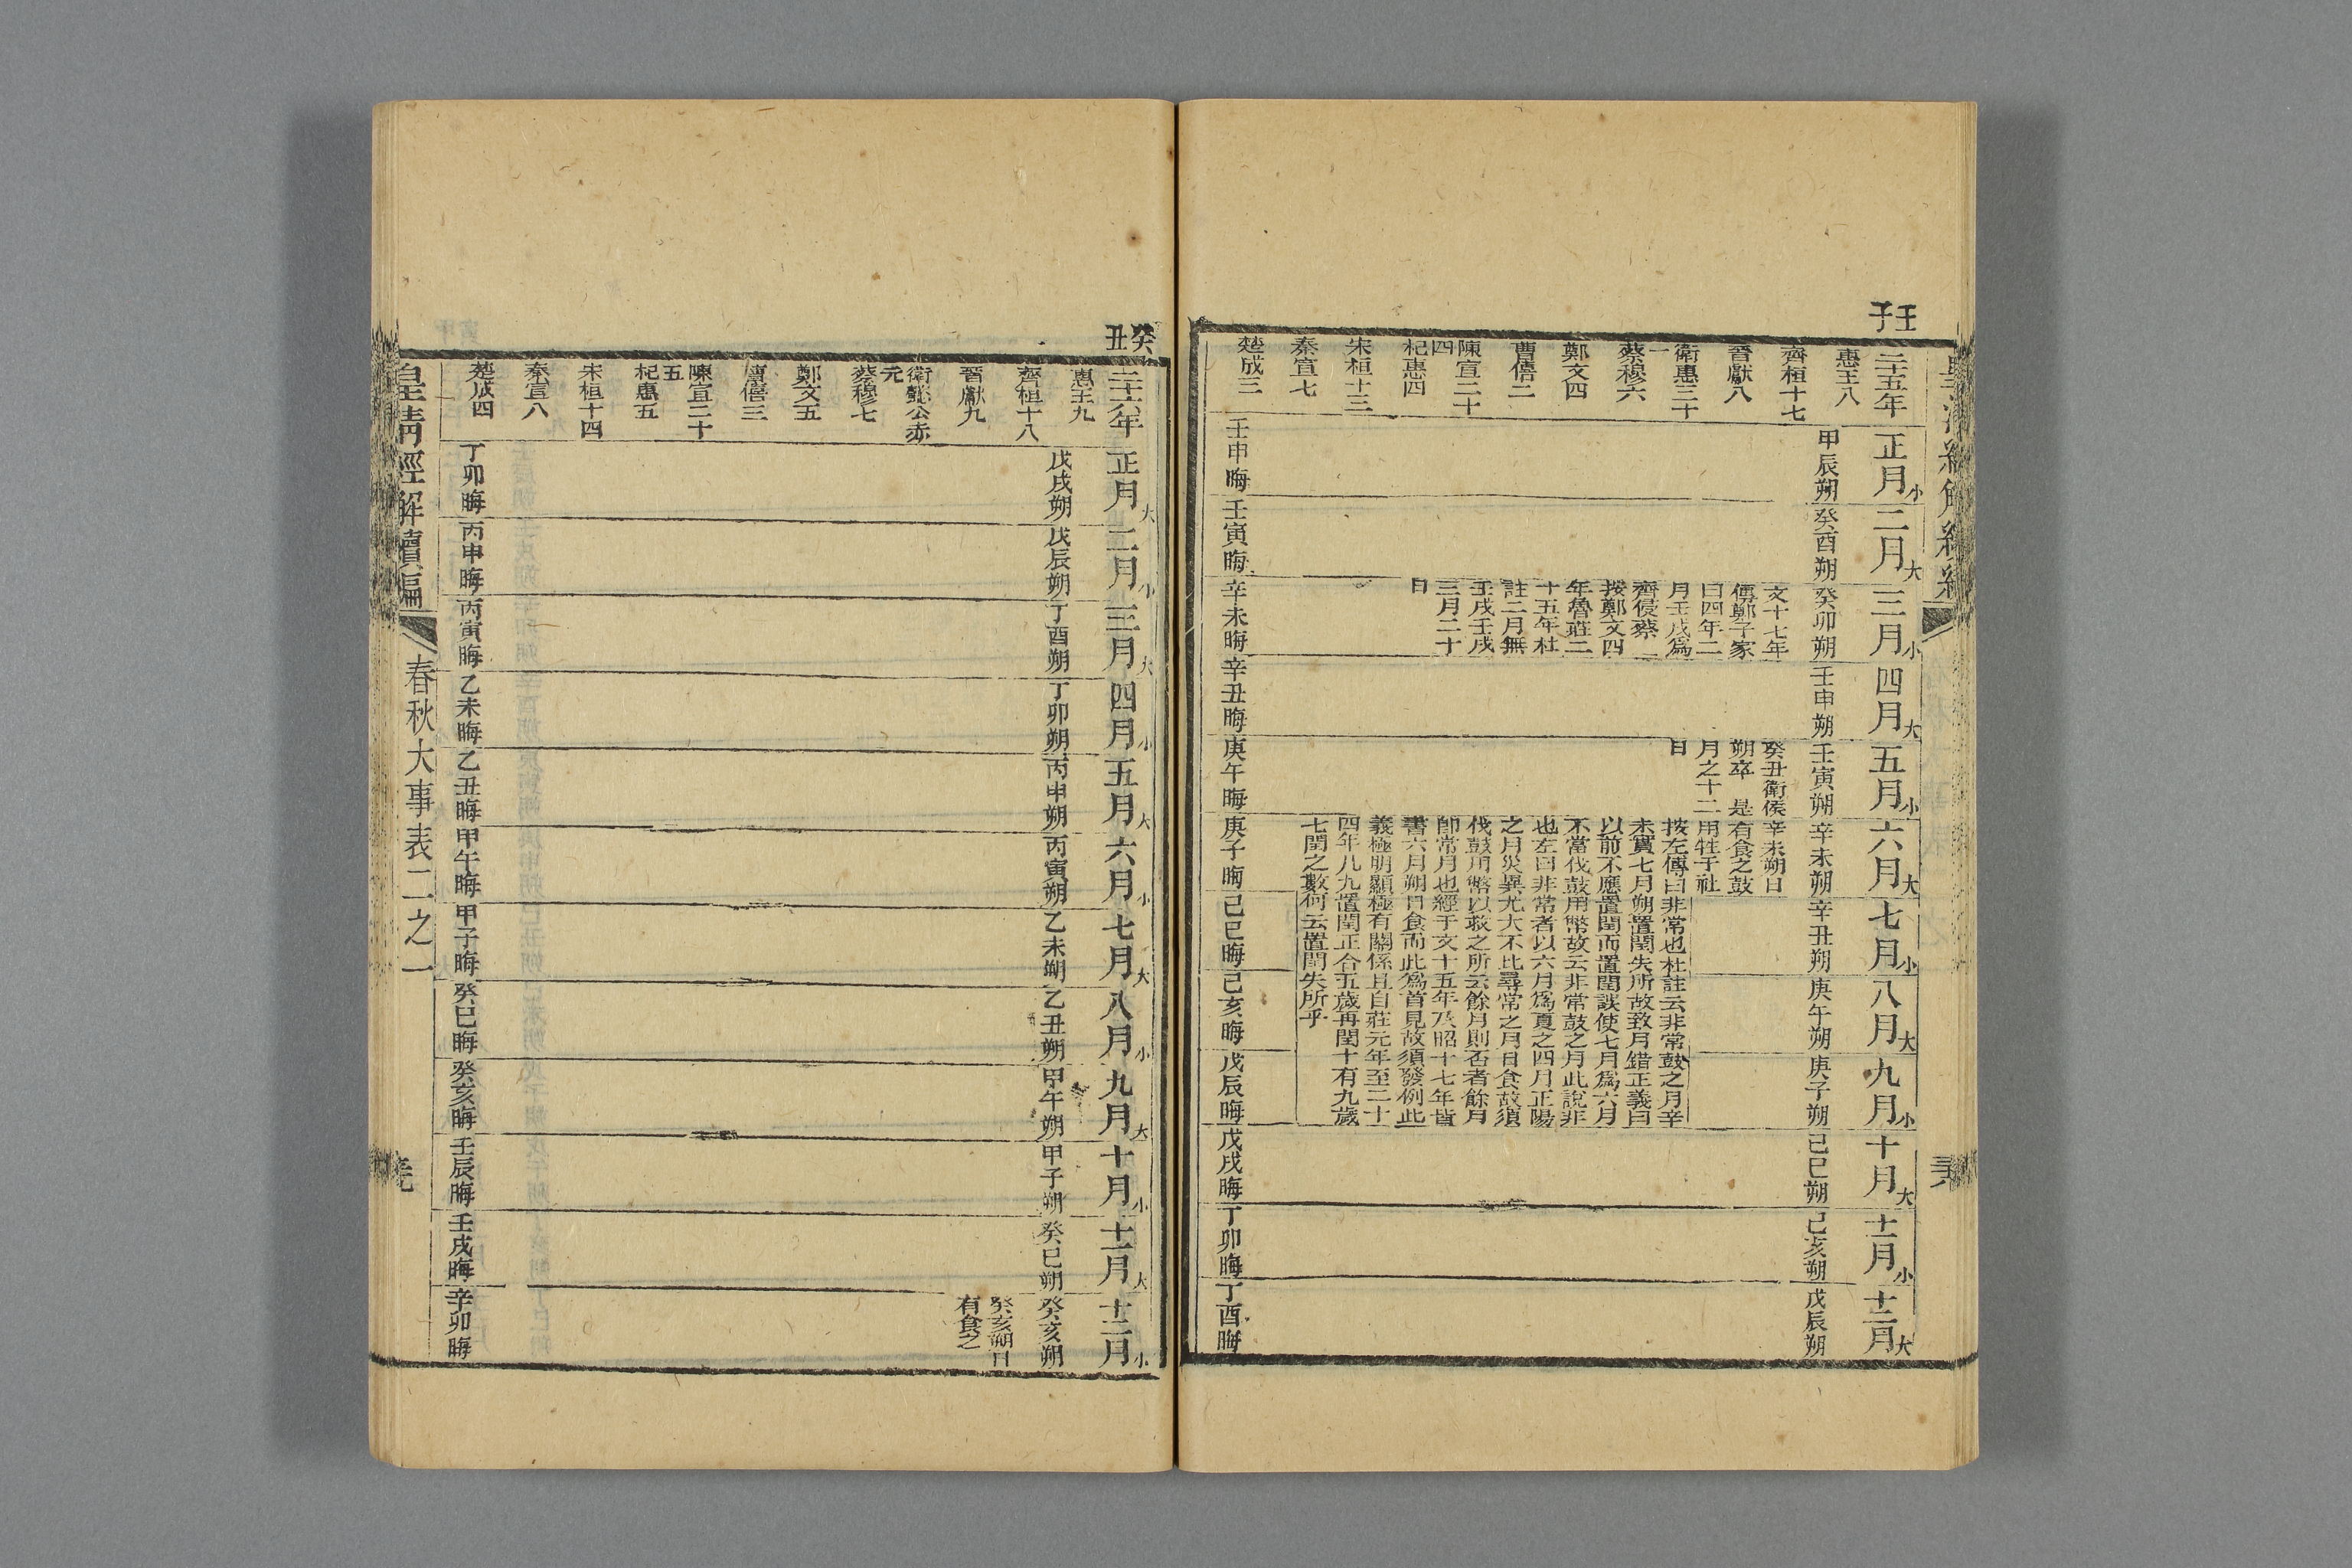 壬子
二十五年
惠王八
齊桓十七
晉獻八
衛惠三十一
蔡穆六
鄭文四
曹僖二
陳宣二十四
杞惠四
宋桓十三
秦宣七
楚成三
正月小
甲辰朔
壬申晦
二月大
癸酉朔
壬寅晦
三月小
癸卯朔
文十七年
傳鄭子家
曰四年二
月壬戌爲
齊侵蔡
按鄭文四
年魯莊二
十五年杜
註二月無
壬戌壬戌
三月二十
日
辛未晦
四月大
壬申朔
辛丑晦
五月小
壬寅朔
癸丑衛侯
朔卒 是
月之十二
日
庚午晦
六月大
辛未朔
辛未朔日
有食之鼓
用牲于社
按左傳曰非常也杜註云非常鼓之月辛
未實七月朔置閏失所故致月錯正義曰
以前不應置閏而置閏誤使七月爲六月
不當伐鼓用幣故云非常鼓之月此說非
也左曰非常者以六月爲夏之四月正陽
之月災異尤大不比尋常之月日食故須
伐鼓用幣以救之所云餘月則否者餘月
卽常月也經于文十五年及昭十七年皆
書六月朔日食而此爲首見故須發例此
義極明顯極有關係且自莊元年至二十
四年凡九置閏正合五歲再閏十有九歲
七閏之數何云置閏失所乎
庚子晦
七月小
辛丑朔
己巳晦
八月大
庚午朔
己亥晦
九月小
庚子朔
戊辰晦
十月大
己巳朔
戊戌晦
十一月小
己亥朔
丁卯晦
十二月大
戊辰朔
丁酉晦
癸丑
二十六年
惠王九
齊桓十八
晉獻九
衛懿公赤元
蔡穆七
鄭文五
曹僖三
陳宣二十五
杞惠五
宋桓十四
秦宣八
楚成四
正月大
戊戌朔
丁卯晦
二月小
戊辰朔
丙申晦
三月大
丁酉朔
丙寅晦
四月小
丁卯朔
乙未晦
五月大
丙申朔
乙丑晦
六月小
丙寅朔
甲午晦
七月大
乙未朔
甲子晦
八月小
乙丑朔
癸巳晦
九月大
甲午朔
癸亥晦
十月小
甲子朔
壬辰晦
十一月大
癸巳朔
壬戌晦
十二月小
癸亥朔
癸亥朔日
有食之
辛卯晦
皇清經解續編
春秋大事表二之一